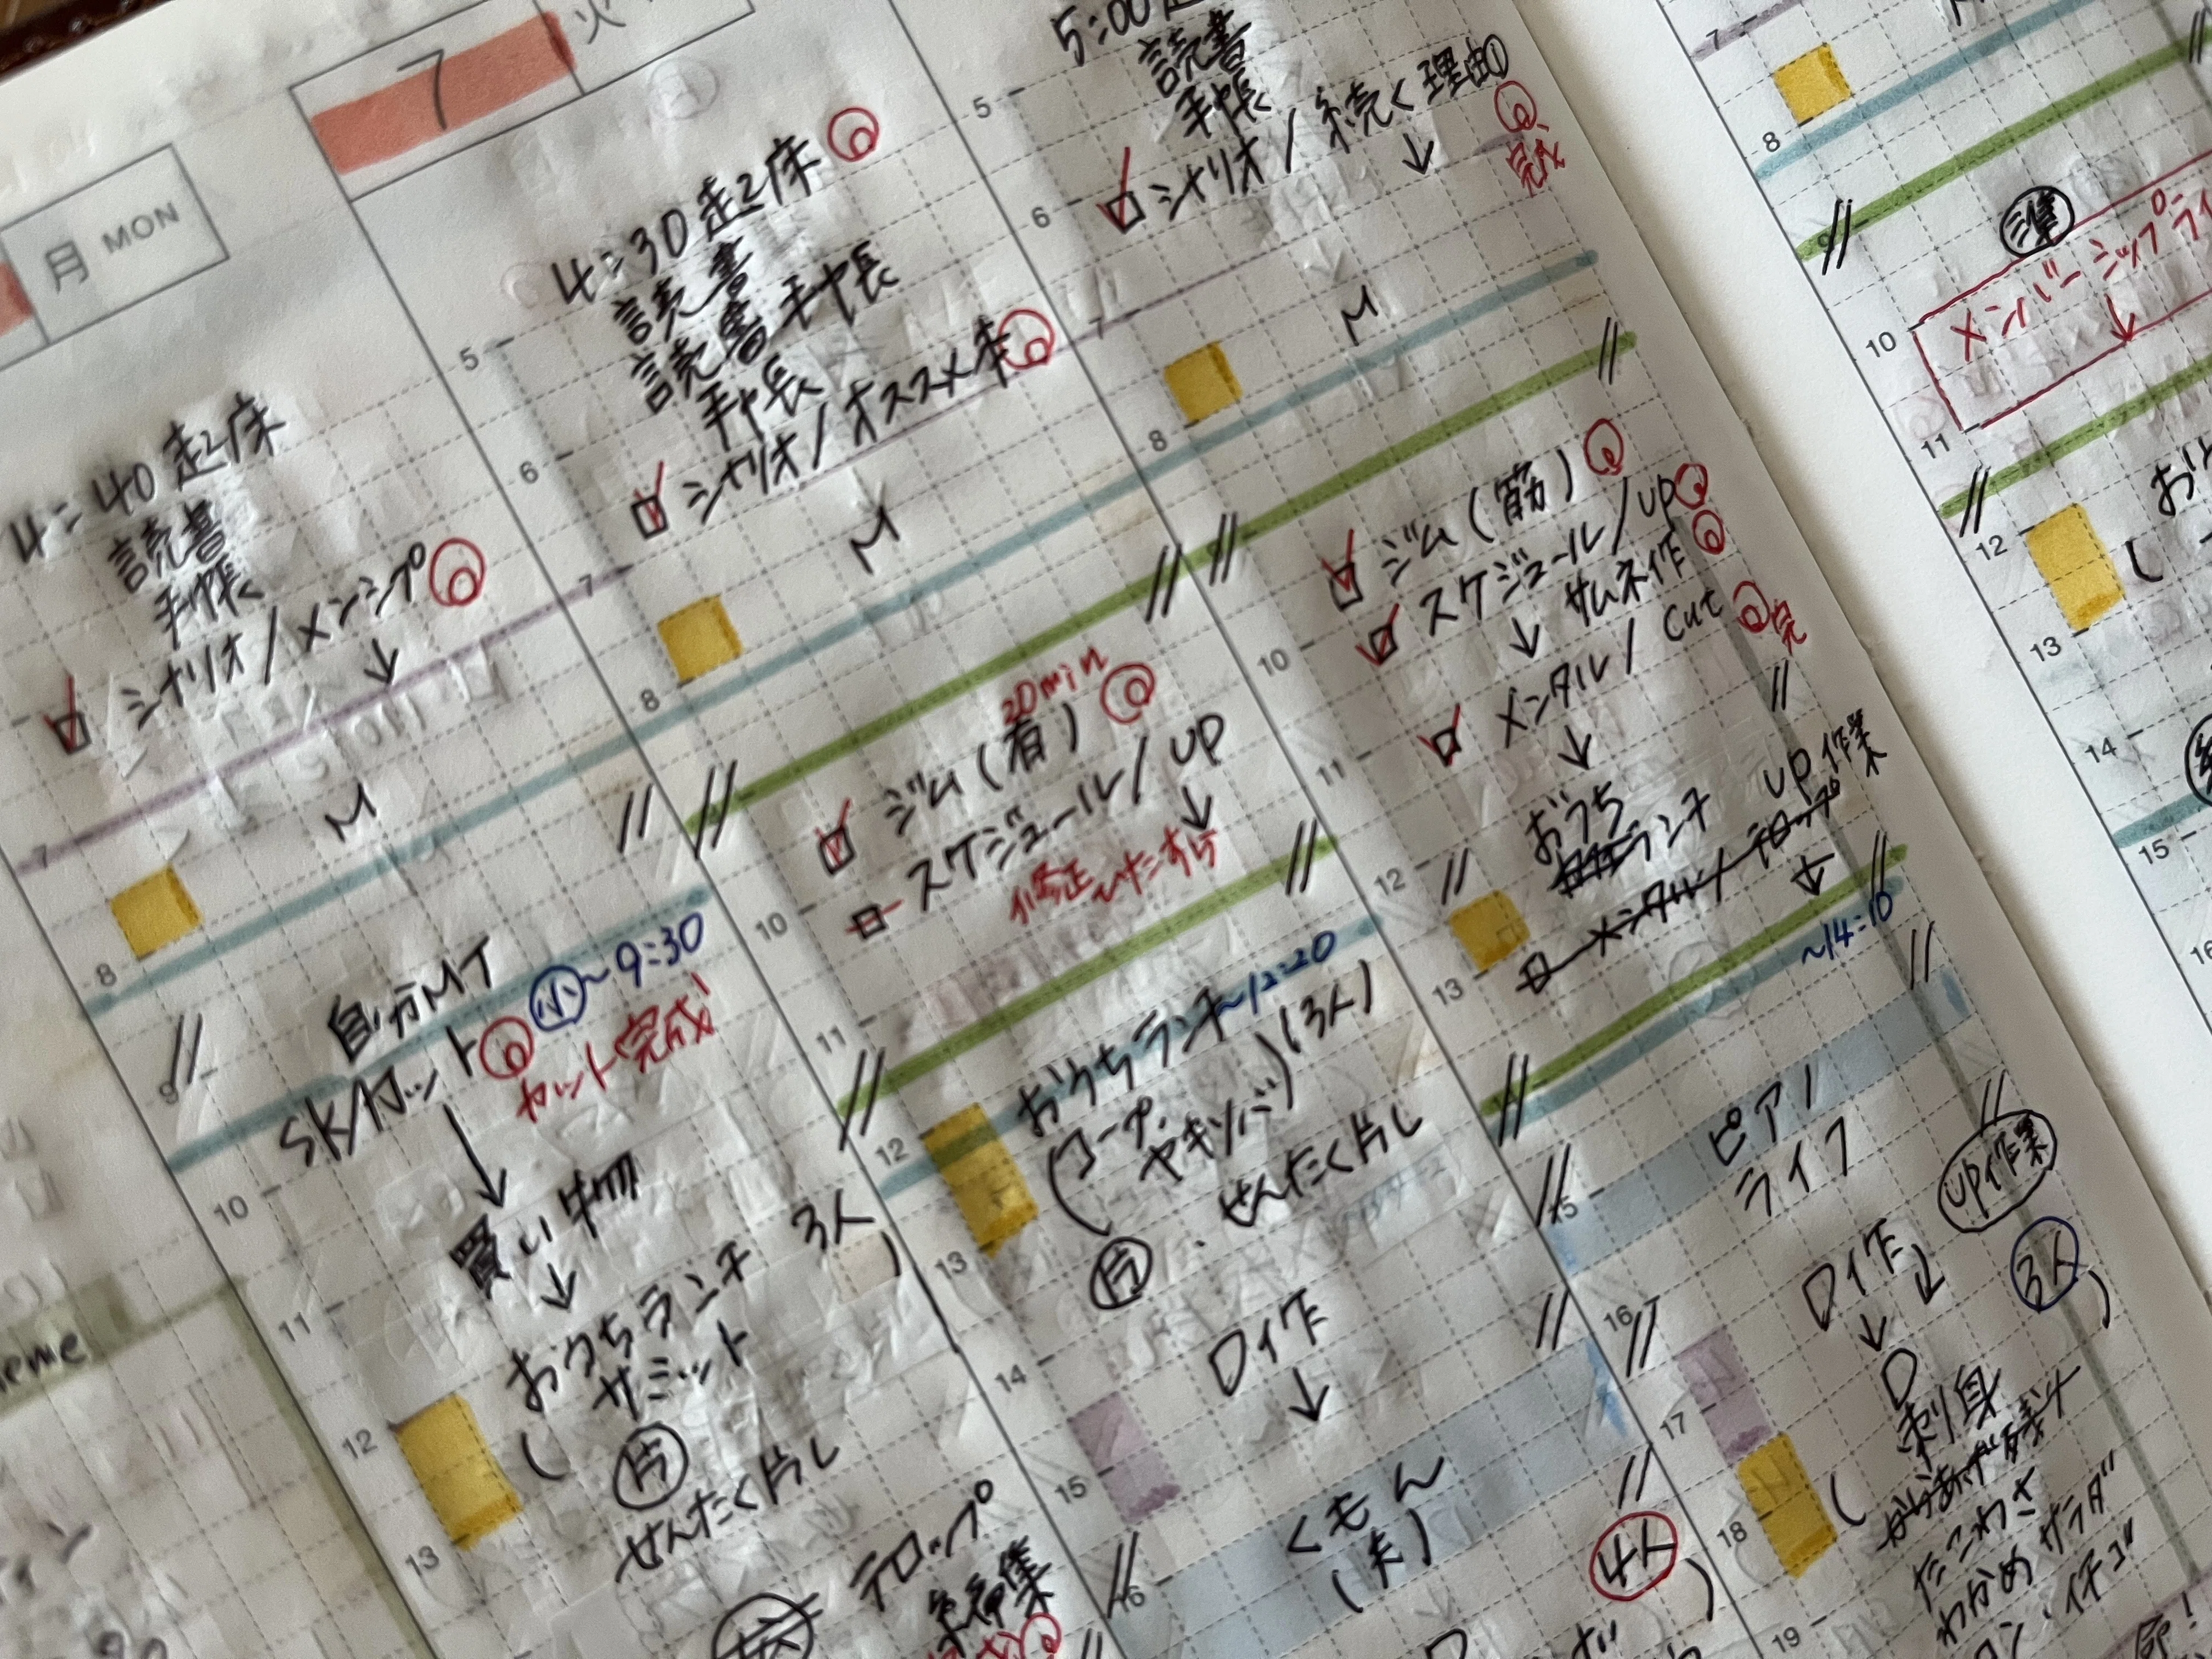 月 MON
4:40 起床
読書
手帳
シナリオ/メンシプ
↓
7
M
8
自分MT
小 ~9:30
SK/カット
カット完成
9
↓
10
買い物
↓
11
おうちランチ 3人
サミット
12
(片)
せんたく片し
13
テロップ
編集
7 火
4:30 起床
読書
読書手帳
手帳
シナリオ/オススメ本
5
6
7
M
8
20min
ジム(有)
スケジュール/UP
↓
修正ひたすら
10
11
おうちランチ ~12:20
(コープ.
ヤキソバ)(3人)
12
片 . せんたく片し
13
ロイ作
↓
14
15
くもん
(夫)
16
4人
5:00
読書
手帳
シナリオ/続く理由①
↓
完成
5
6
7
M
8
ジム(筋)
スケジュール/UP
↓ サムネ作
メンタル/cut
完
↓
10
11
おうち
ランチ
UP作業
↓
メンタル/テロップ
12
13
~14:10
ピアノ
ライフ
15
UP作業
ロイ作
↓ ↓
3人
16
D
刺身
17
たこわさ
わかめサラダ
18
19
7
8
9
準
メンバーシップライ
↓
10
11
12
13
14
15
16
eme